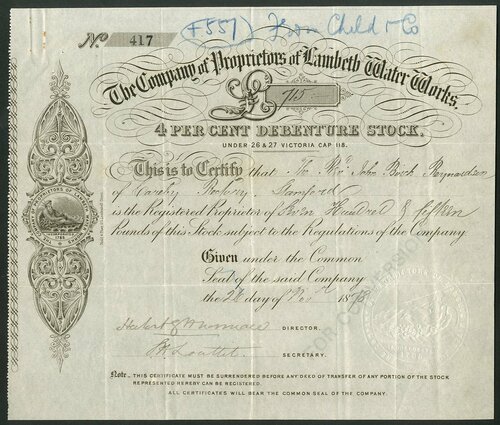 No. 417
(4551) From Child & Co
The Company of Proprietors of Lambeth Water Works.
£ 715
4 PER CENT DEBENTURE STOCK.
UNDER 26 & 27 VICTORIA CAP 118.
This is to Certify that The Revd. John Birch Reynardson
of Careby Rectory, Stamford
is the Registered Proprietor of Seven Hundred & fifteen
Pounds of this Stock subject to the Regulations of the Company.
Given under the Common
Seal of the said Company
the day of Novr 1878
DIRECTOR.
SECRETARY.
Note.— THIS CERTIFICATE MUST BE SURRENDERED BEFORE ANY DEED OF TRANSFER OF ANY PORTION OF THE STOCK
REPRESENTED HEREBY CAN BE REGISTERED.
ALL CERTIFICATES WILL BEAR THE COMMON SEAL OF THE COMPANY.